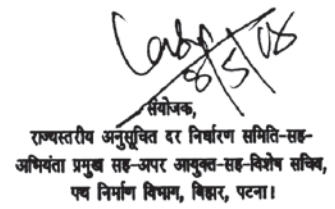 8/5/08
संयोजक,
राज्यस्तरीय अनुसूचित दर निर्धारण समिति-सह-
अभियंता प्रमुख सह-अपर आयुक्त-सह-विशेष सचिव,
पथ निर्माण विभाग, बिहार, पटना।